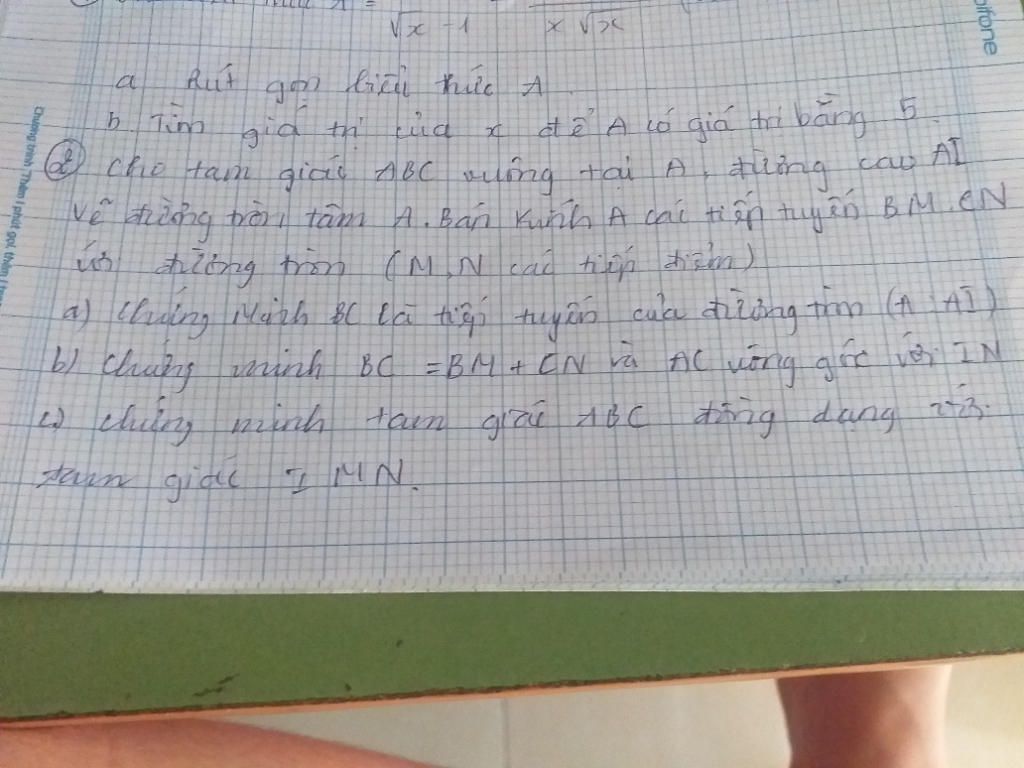 A =
√x - 1 x √x
a Rút gọn biểu thức A
b Tìm giá trị của x để A có giá trị bằng 5.
② cho tam giác ABC vuông tại A, đường cao AI
Vẽ đường tròn tâm A. Bán kính A các tiếp tuyến BM, CN
với đường tròn (M, N các tiếp điểm)
a) Chứng Minh BC là tiếp tuyến của đường tròn (A; AI)
b) Chứng minh BC = BM + CN và AC vuông góc với IN
c) chứng minh tam giác ABC đồng dạng với
tam giác IMN.